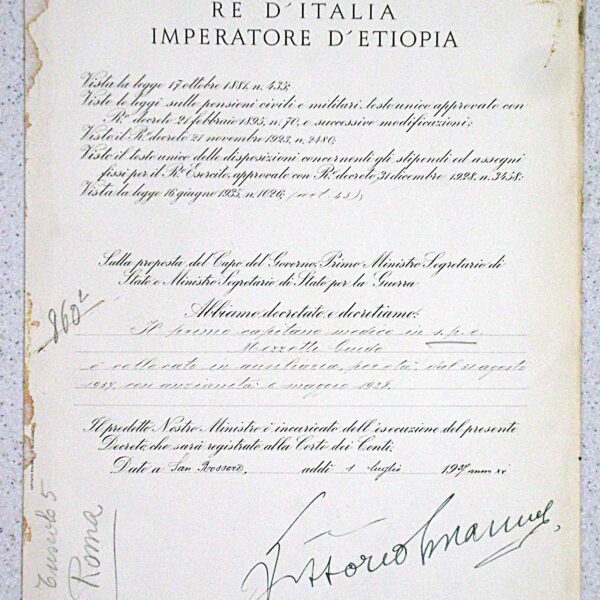 RE D'ITALIA
IMPERATORE D'ETIOPIA
Vista la legge 17 ottobre 1881, n. 435;
Viste le leggi sulle pensioni civili e militari, testo unico approvato con
R.° decreto 21 febbraio 1895, n. 70, e successive modificazioni;
Visto il R.° decreto 21 novembre 1923, n. 2480;
Visto il testo unico delle disposizioni concernenti gli stipendi ed assegni
fissi per il R.° Esercito, approvato con R.° decreto 31 dicembre 1928, n. 3458;
Vista la legge 16 giugno 1935, n. 1026; (art. 43);
Sulla proposta del Capo del Governo, Primo Ministro Segretario di
Stato e Ministro Segretario di Stato per la Guerra
Abbiamo decretato e decretiamo:
860
Il primo capitano medico in s.p.e.
Guido
è collocato in ausiliaria, per età, dal agosto
1937, con anzianità 6 maggio 1928.
Il predetto Nostro Ministro è incaricato dell'esecuzione del presente
Decreto, che sarà registrato alla Corte dei Conti.
Dato a San Rossore, addì 1 luglio 1937 anno XV
Vittorio Emanuele
5
Roma